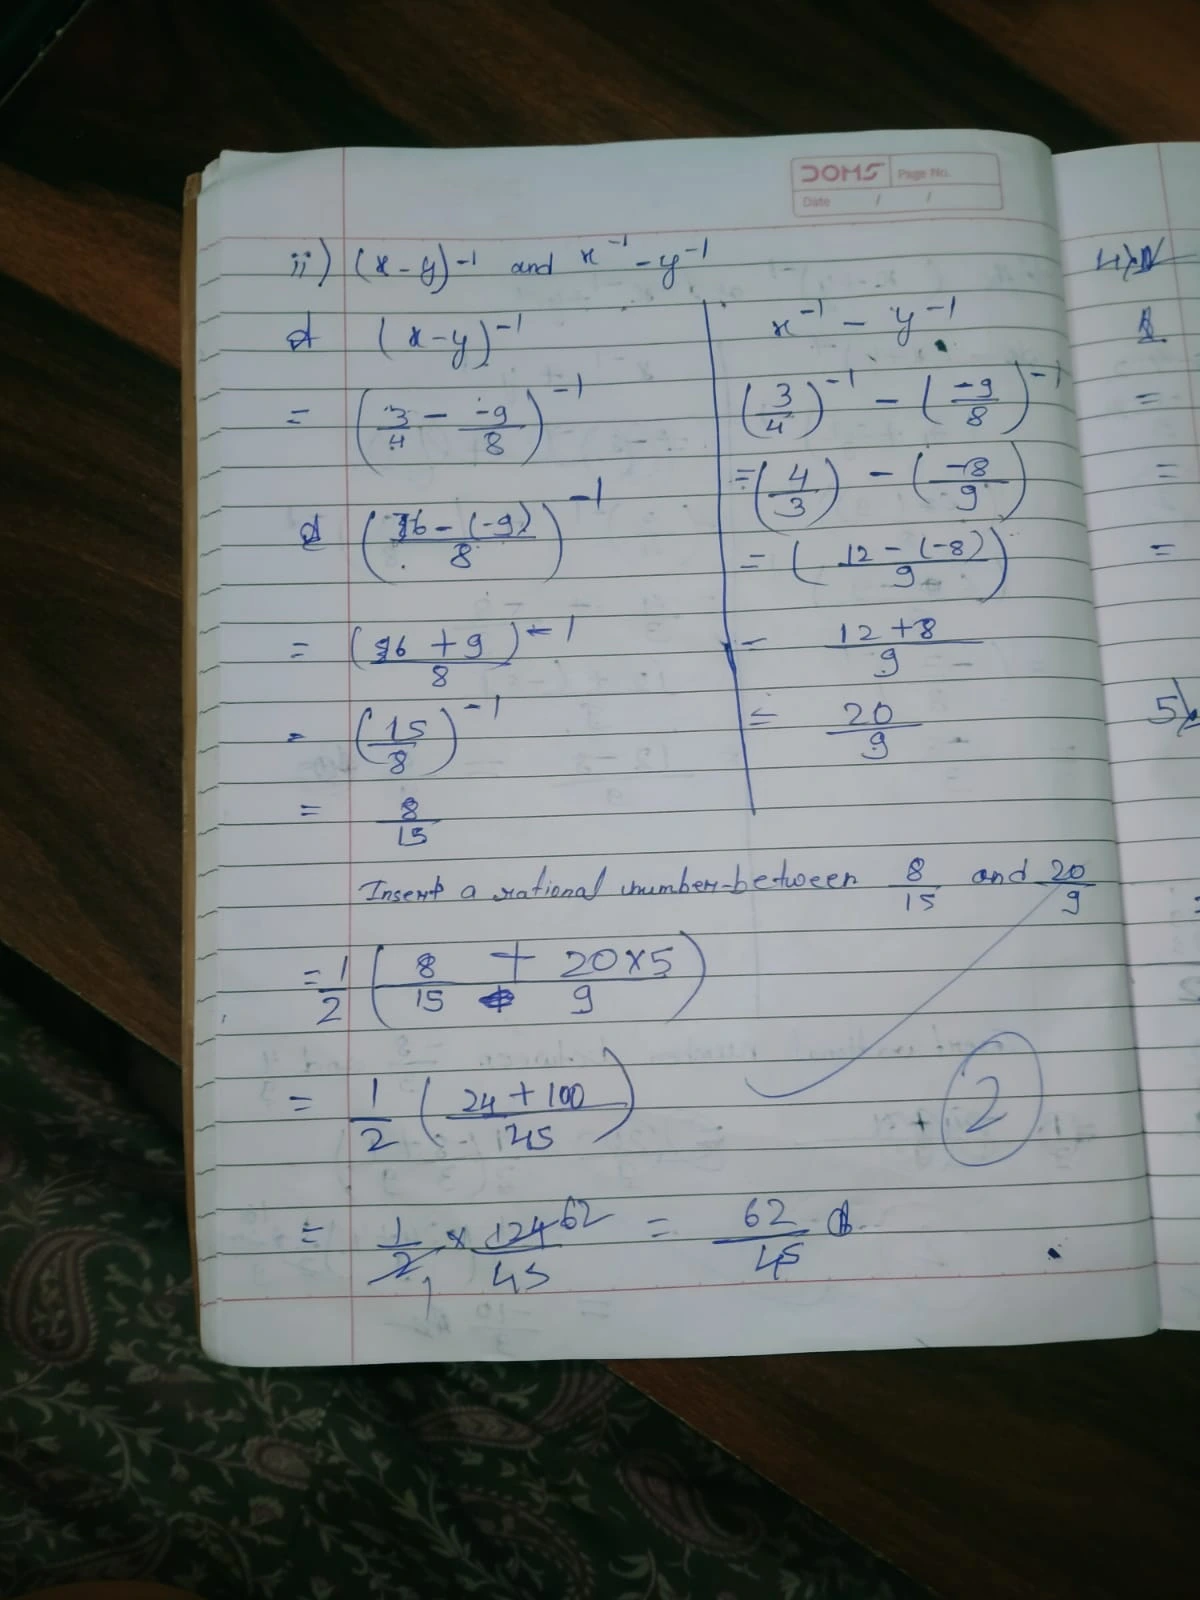 DOMS Page No.
Date / /
ii) (x-y)⁻¹ and x⁻¹ - y⁻¹
(x-y)⁻¹
= (3/4 - -9/8)⁻¹
(6-(-9)/8)⁻¹
= (6+9/8)⁻¹
= (15/8)⁻¹
= 8/15
x⁻¹ - y⁻¹
(3/4)⁻¹ - (-9/8)⁻¹
= (4/3) - (-8/9)
= (12-(-8)/9)
= 12+8/9
= 20/9
Insert a rational number between 8/15 and 20/9
= 1/2 (8/15 + 20×5/9)
= 1/2 (24+100/45)
2
= 1/2 × 124/45 62 = 62/45
1
4)
=
=
=
5)